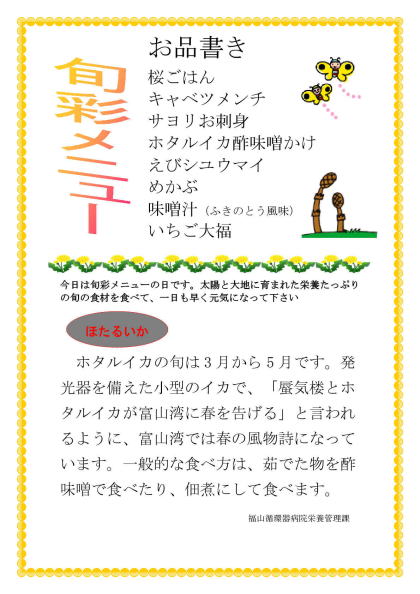 旬彩メニュー
お品書き
桜ごはん
キャベツメンチ
サヨリお刺身
ホタルイカ酢味噌かけ
えびシュウマイ
めかぶ
味噌汁（ふきのとう風味）
いちご大福
今日は旬彩メニューの日です。太陽と大地に育まれた栄養たっぷり
の旬の食材を食べて、一日も早く元気になって下さい
ほたるいか
ホタルイカの旬は３月から５月です。発
光器を備えた小型のイカで、「蜃気楼とホ
タルイカが富山湾に春を告げる」と言われ
るように、富山湾では春の風物詩になって
います。一般的な食べ方は、茹でた物を酢
味噌で食べたり、佃煮にして食べます。
福山循環器病院栄養管理課